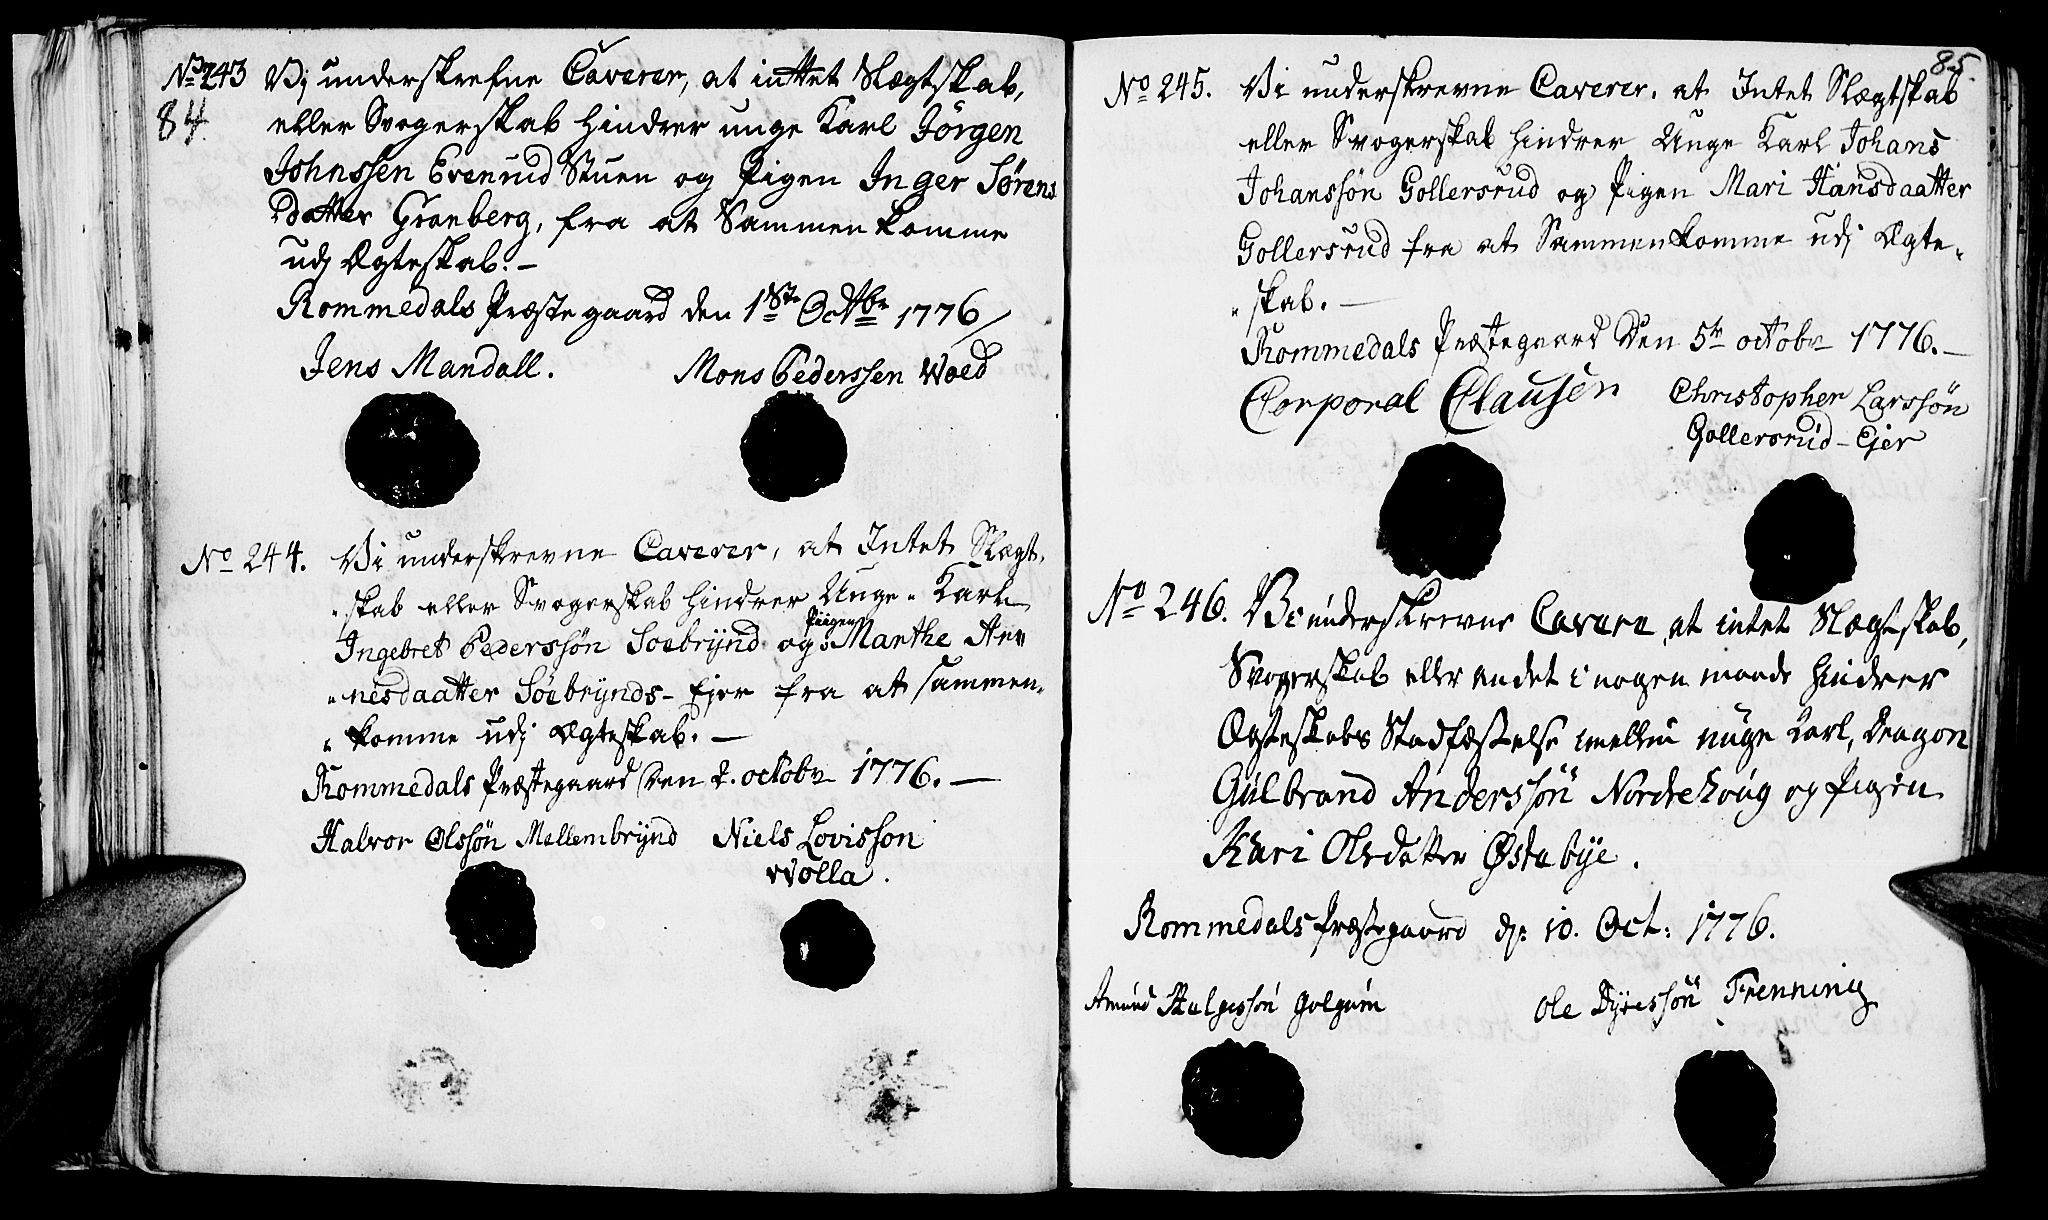 No 243 Vi underskrefne Caverer, at inttet Slægtskab,
84.
eller Svogerskab hindrer unge Karl Jörgen
Johnssen Evenrud Stuen og Pigen Inger Sörens
datter Granberg, fra at Sammenkomme
udj Ægteskab. —
Rommedals Præstegaard den 1ste Octbr 1776
Jens Mandall. Mons Pederssen Wold
No 244. Vi underskrevne Caverer, at Intet Slægt„
„skab eller Svogerskab hindrer Unge„ Karl
Piigen
Ingebret Pederssön Soebrÿnd og Marthe Ar„
„nesdaatter Söebrÿnds-Ejer fra at sammen„
„komme udj Ægteskab. —
Rommedals Præstegaard Den 2. octobr 1776. —
Halvor Olssön Mellembrÿnd Niels Lovisson
Wolla.
85.
No 245. Vi underskrevne Caverer, at Intet Slægtskab
eller Svogerskab hindrer Unge Karl Johans
Johanssön Gollersrud og Pigen Mari Hansdaatter
Gollersrud fra at Sammenkomme udj Ægte„
„skab. —
Rommedals Præstegaard Den 5te octobr 1776. —
Corporal Clausen Christopher Larssön
Gollersrud-Ejer
No 246. Vi underskrevne Cavere, at intet Slægtskab,
Svogerskab eller andet i nogen maade hindrer
Ægteskabs Stadfæstelse imellem unge Karl, Dragon
Gulbrand Anderssön Nordrehoug og Pigen
Kari Olsdatter Östebÿe.
Rommedals Præstegaard d: 10. Oct: 1776.
Amund Helgessön Ole Dÿressön Frenning